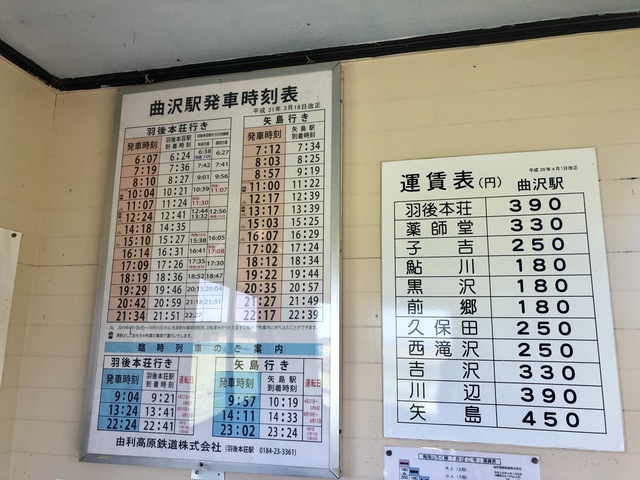 曲沢駅発車時刻表
平成 31年 3月16日改正
羽後本荘行き
発車時刻 羽後本荘駅到着時刻
6:07 6:24 6:38 6:27
7:19 7:36 7:42 7:41
8:10 8:27 9:01 9:56
10:04 10:21 10:39 11:07
11:07 11:24 11:30
12:24 12:41 12:44 12:56
14:18 14:35
15:10 15:27 15:38 16:05
16:14 16:31 16:41 17:08
17:09 17:26 17:35 17:30
18:29 18:46 18:52 18:47
19:29 19:46 20:15 20:04
20:42 20:59 21:18 21:31
21:34 21:51 22:27
矢島行き
発車時刻 矢島駅到着時刻
7:12 7:34
8:03 8:25
8:57 9:19
11:00 11:22
12:17 12:39
13:17 13:39
15:03 15:25
16:07 16:29
17:02 17:24
18:12 18:34
19:22 19:44
20:35 20:57
21:27 21:49
22:17 22:39
臨時列車のご案内
羽後本荘行き
発車時刻 羽後本荘駅到着時刻 運転日
9:04 9:21
13:24 13:41
22:24 22:41
矢島行き
発車時刻 矢島駅到着時刻 運転日
9:57 10:19
14:11 14:33
23:02 23:24
由利高原鉄道株式会社 (羽後本荘駅 0184-23-3361)
平成 26年 4月1日改正
運賃表(円) 曲沢駅
羽後本荘 390
薬師堂 330
子吉 250
鮎川 180
黒沢 180
前郷 180
久保田 250
西滝沢 250
吉沢 330
川辺 390
矢島 450